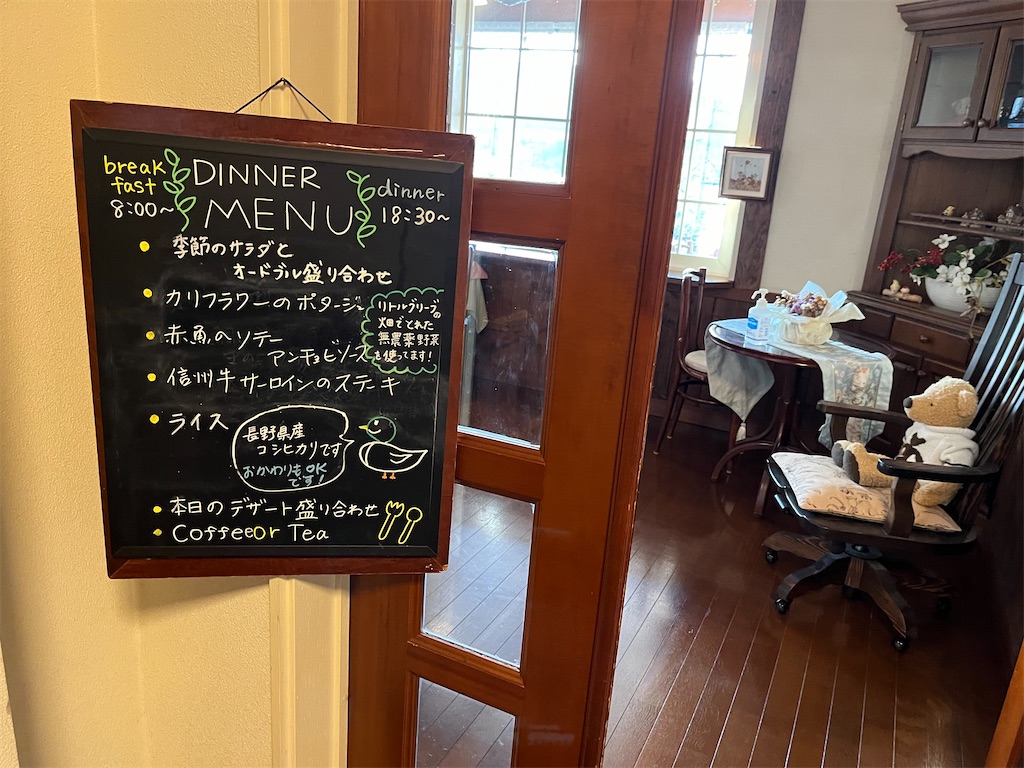 break
fast
8:00~
DINNER
MENU
dinner
18:30~
季節のサラダと
オードブル盛り合わせ
カリフラワーのポタージュ
リトルグリーブの
畑でとれた
無農薬野菜
を使ってます!
赤魚のソテー
アンチョビソース
信州牛サーロインのステーキ
ライス
長野県産
コシヒカリです
おかわりもOK
です!
本日のデザート盛り合わせ
CoffeeOr Tea